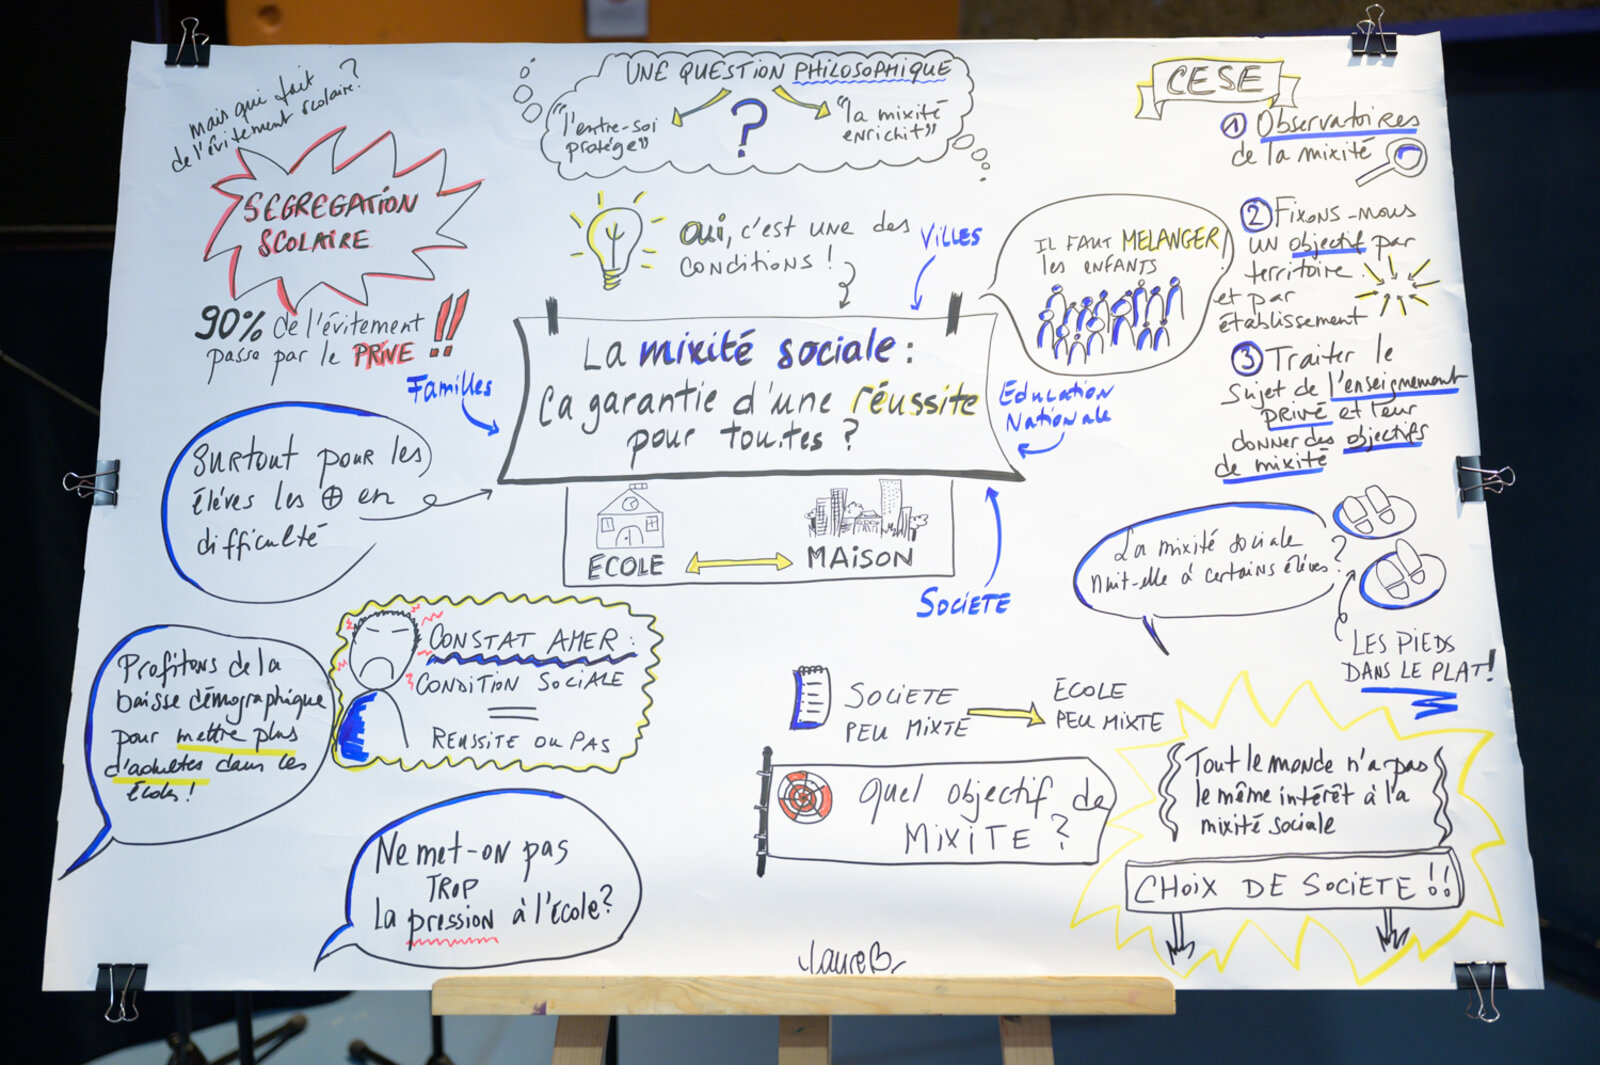 mais qui fait
de l'évitement scolaire?
SEGREGATION
SCOLAIRE
90% de l'évitement
passe par le PRIVE !!
UNE QUESTION PHILOSOPHIQUE
"l'entre-soi
protège"
?
"la mixité
enrichit"
OUI, c'est une des
conditions !
VILLES
IL FAUT MELANGER
les ENFANTS
CESE
1 Observatoires
de la mixité
2 Fixons-nous
un objectif par
territoire
et par
établissement
3 Traiter le
sujet de l'enseignement
PRIVÉ et leur
donner des objectifs
de mixité
Familles
La mixité sociale :
Ca garantie d'une réussite
pour tou.tes ?
Education
Nationale
ÉCOLE
MAISON
SOCIETE
Surtout pour les
élèves les + en
difficulté
La mixité sociale
nuit-elle à certains élèves ?
LES PIEDS
DANS LE PLAT!
Profitons de la
baisse démographique
pour mettre plus
d'adultes dans les
écoles !
CONSTAT AMER :
CONDITION SOCIALE
=
REUSSITE OU PAS
SOCIETE
PEU MIXTE
ÉCOLE
PEU MIXTE
Quel objectif de
MIXITE ?
Tout le monde n'a pas
le même intérêt à la
mixité sociale
CHOIX DE SOCIETE !!
Ne met-on pas
TROP
La pression à l'école?
LaureB.